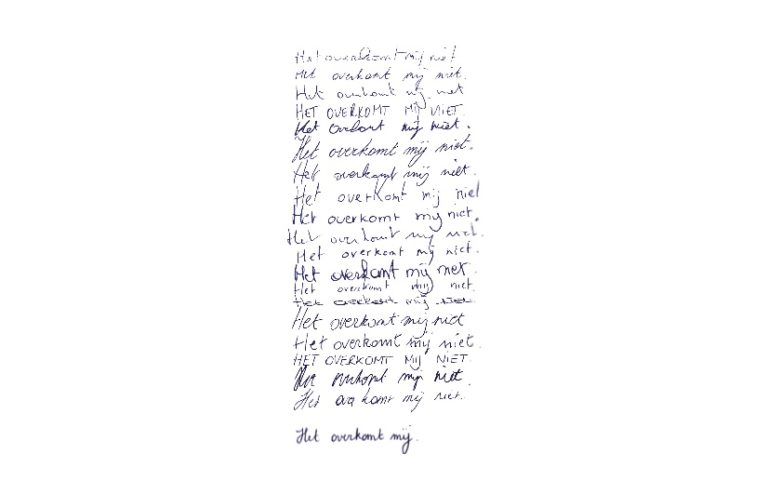 Het overkomt mij niet
Het overkomt mij niet.
Het overkomt mij niet
HET OVERKOMT MIJ NIET.
Het overkomt mij niet.
Het overkomt mij niet.
Het overkomt mij niet.
Het overkomt mij niet
Het overkomt mij niet.
Het overkomt mij niet.
Het overkomt mij niet.
Het overkomt mij niet.
Het overkomt mij niet.
Het overkomt mij niet
Het overkomt mij niet
Het overkomt mij niet.
HET OVERKOMT MIJ NIET
Het overkomt mij niet.
Het overkomt mij niet.
Het overkomt mij.